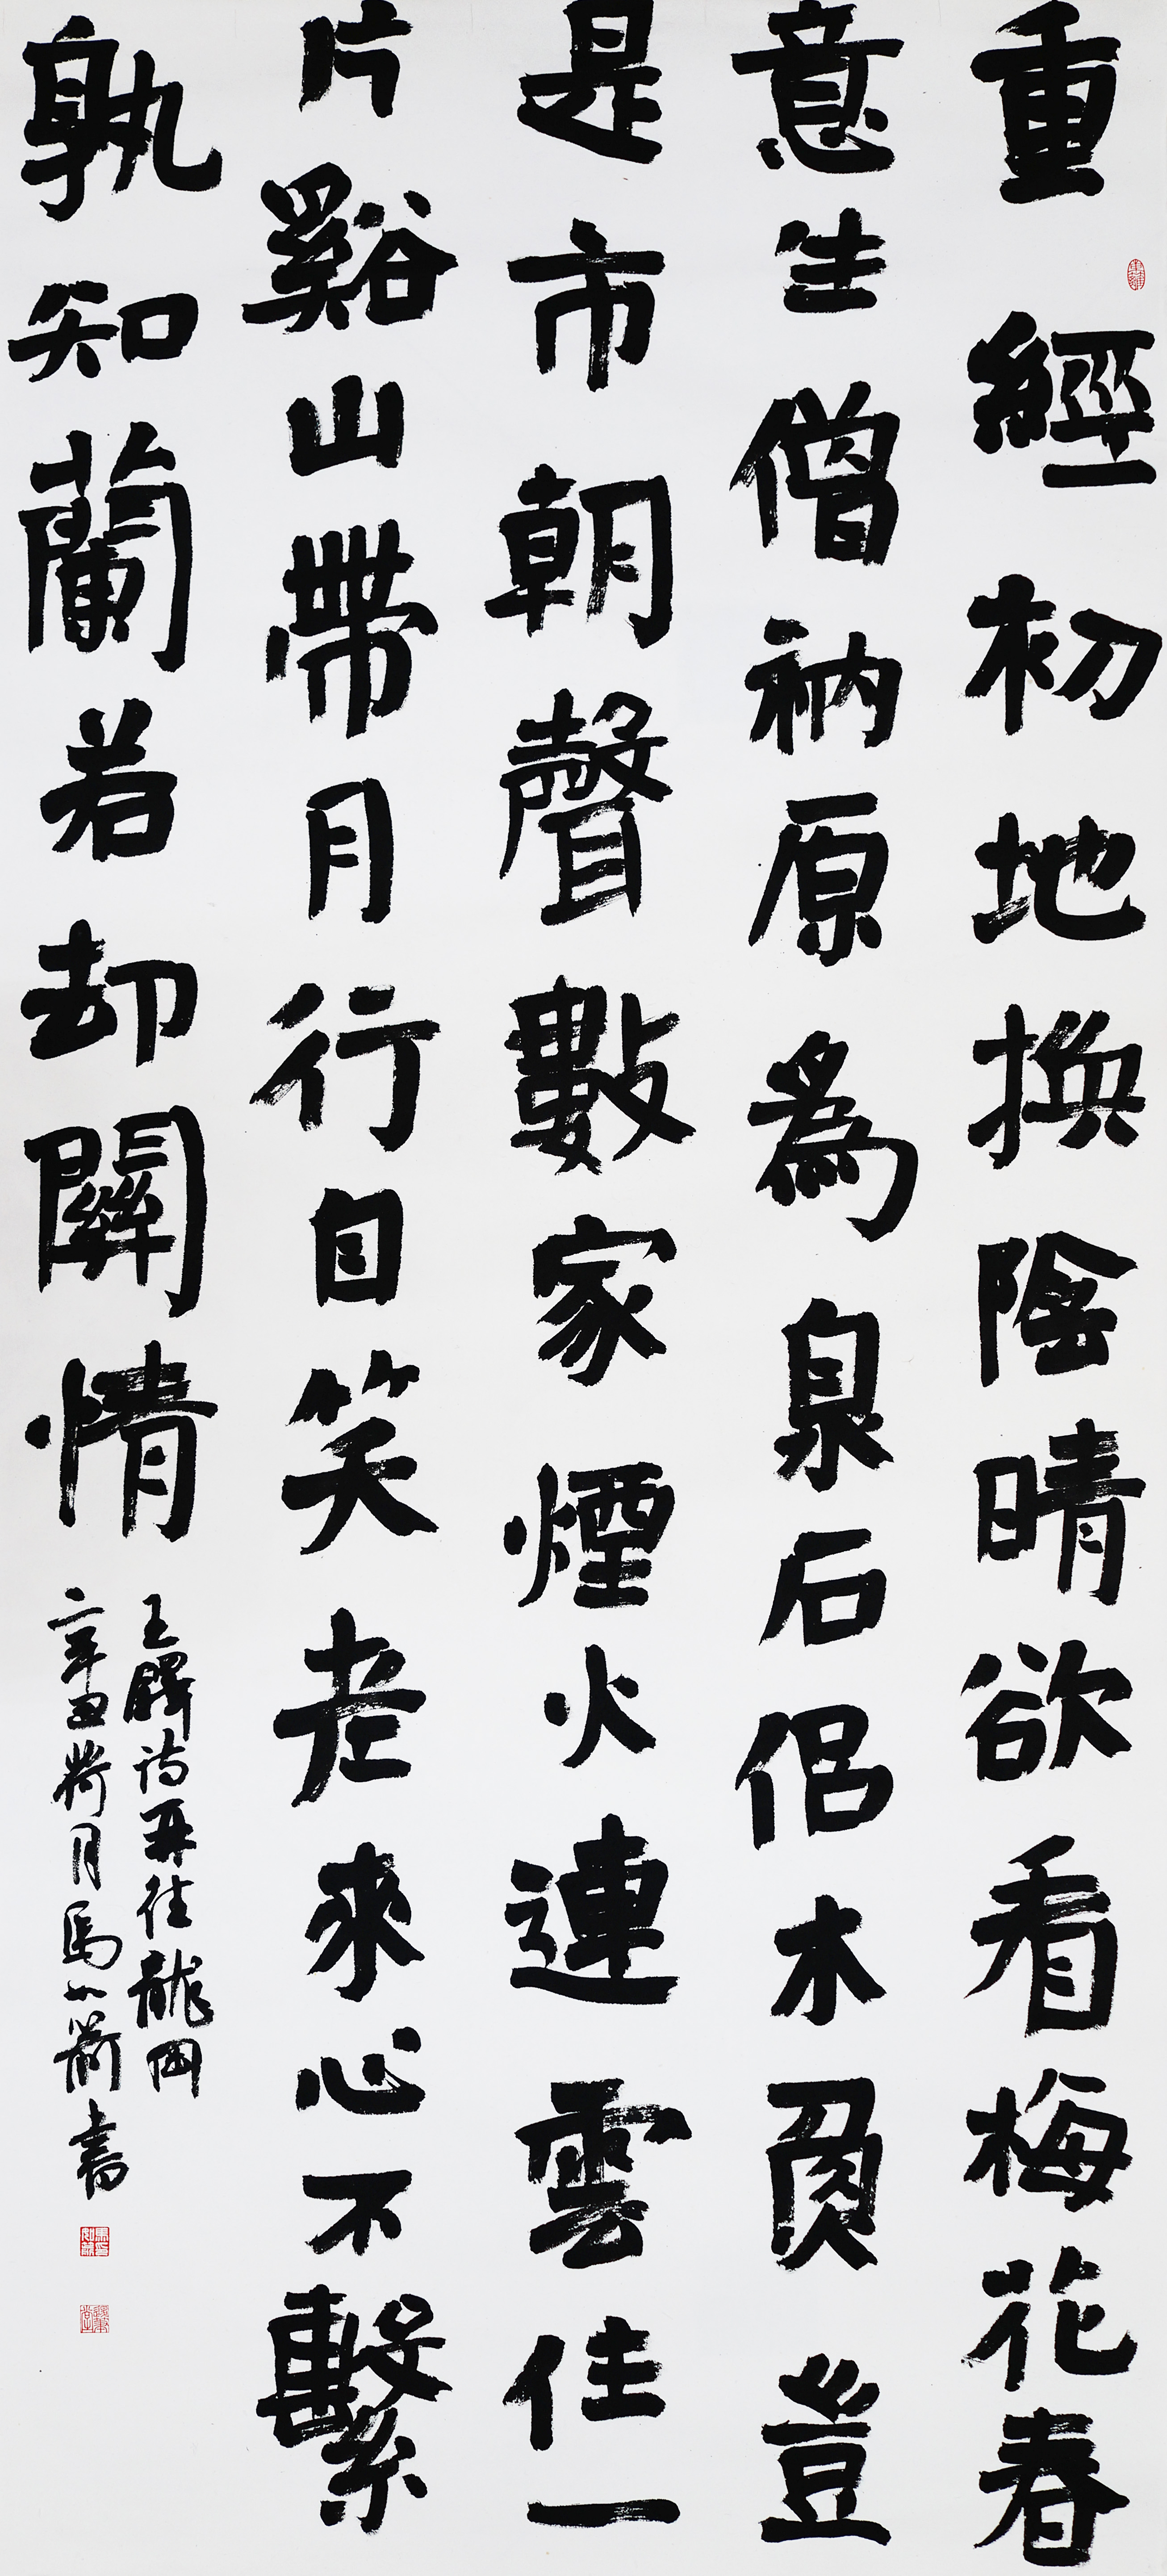 重經初地換陰晴欲看梅花春
意生僧衲原爲泉石侶木魚豈
是市朝聲數家煙火連雲住一
片谿山帶月行自笑老來心不繫
孰知蘭若却關情
王鐸詩再往龍岡
辛丑月馬小書